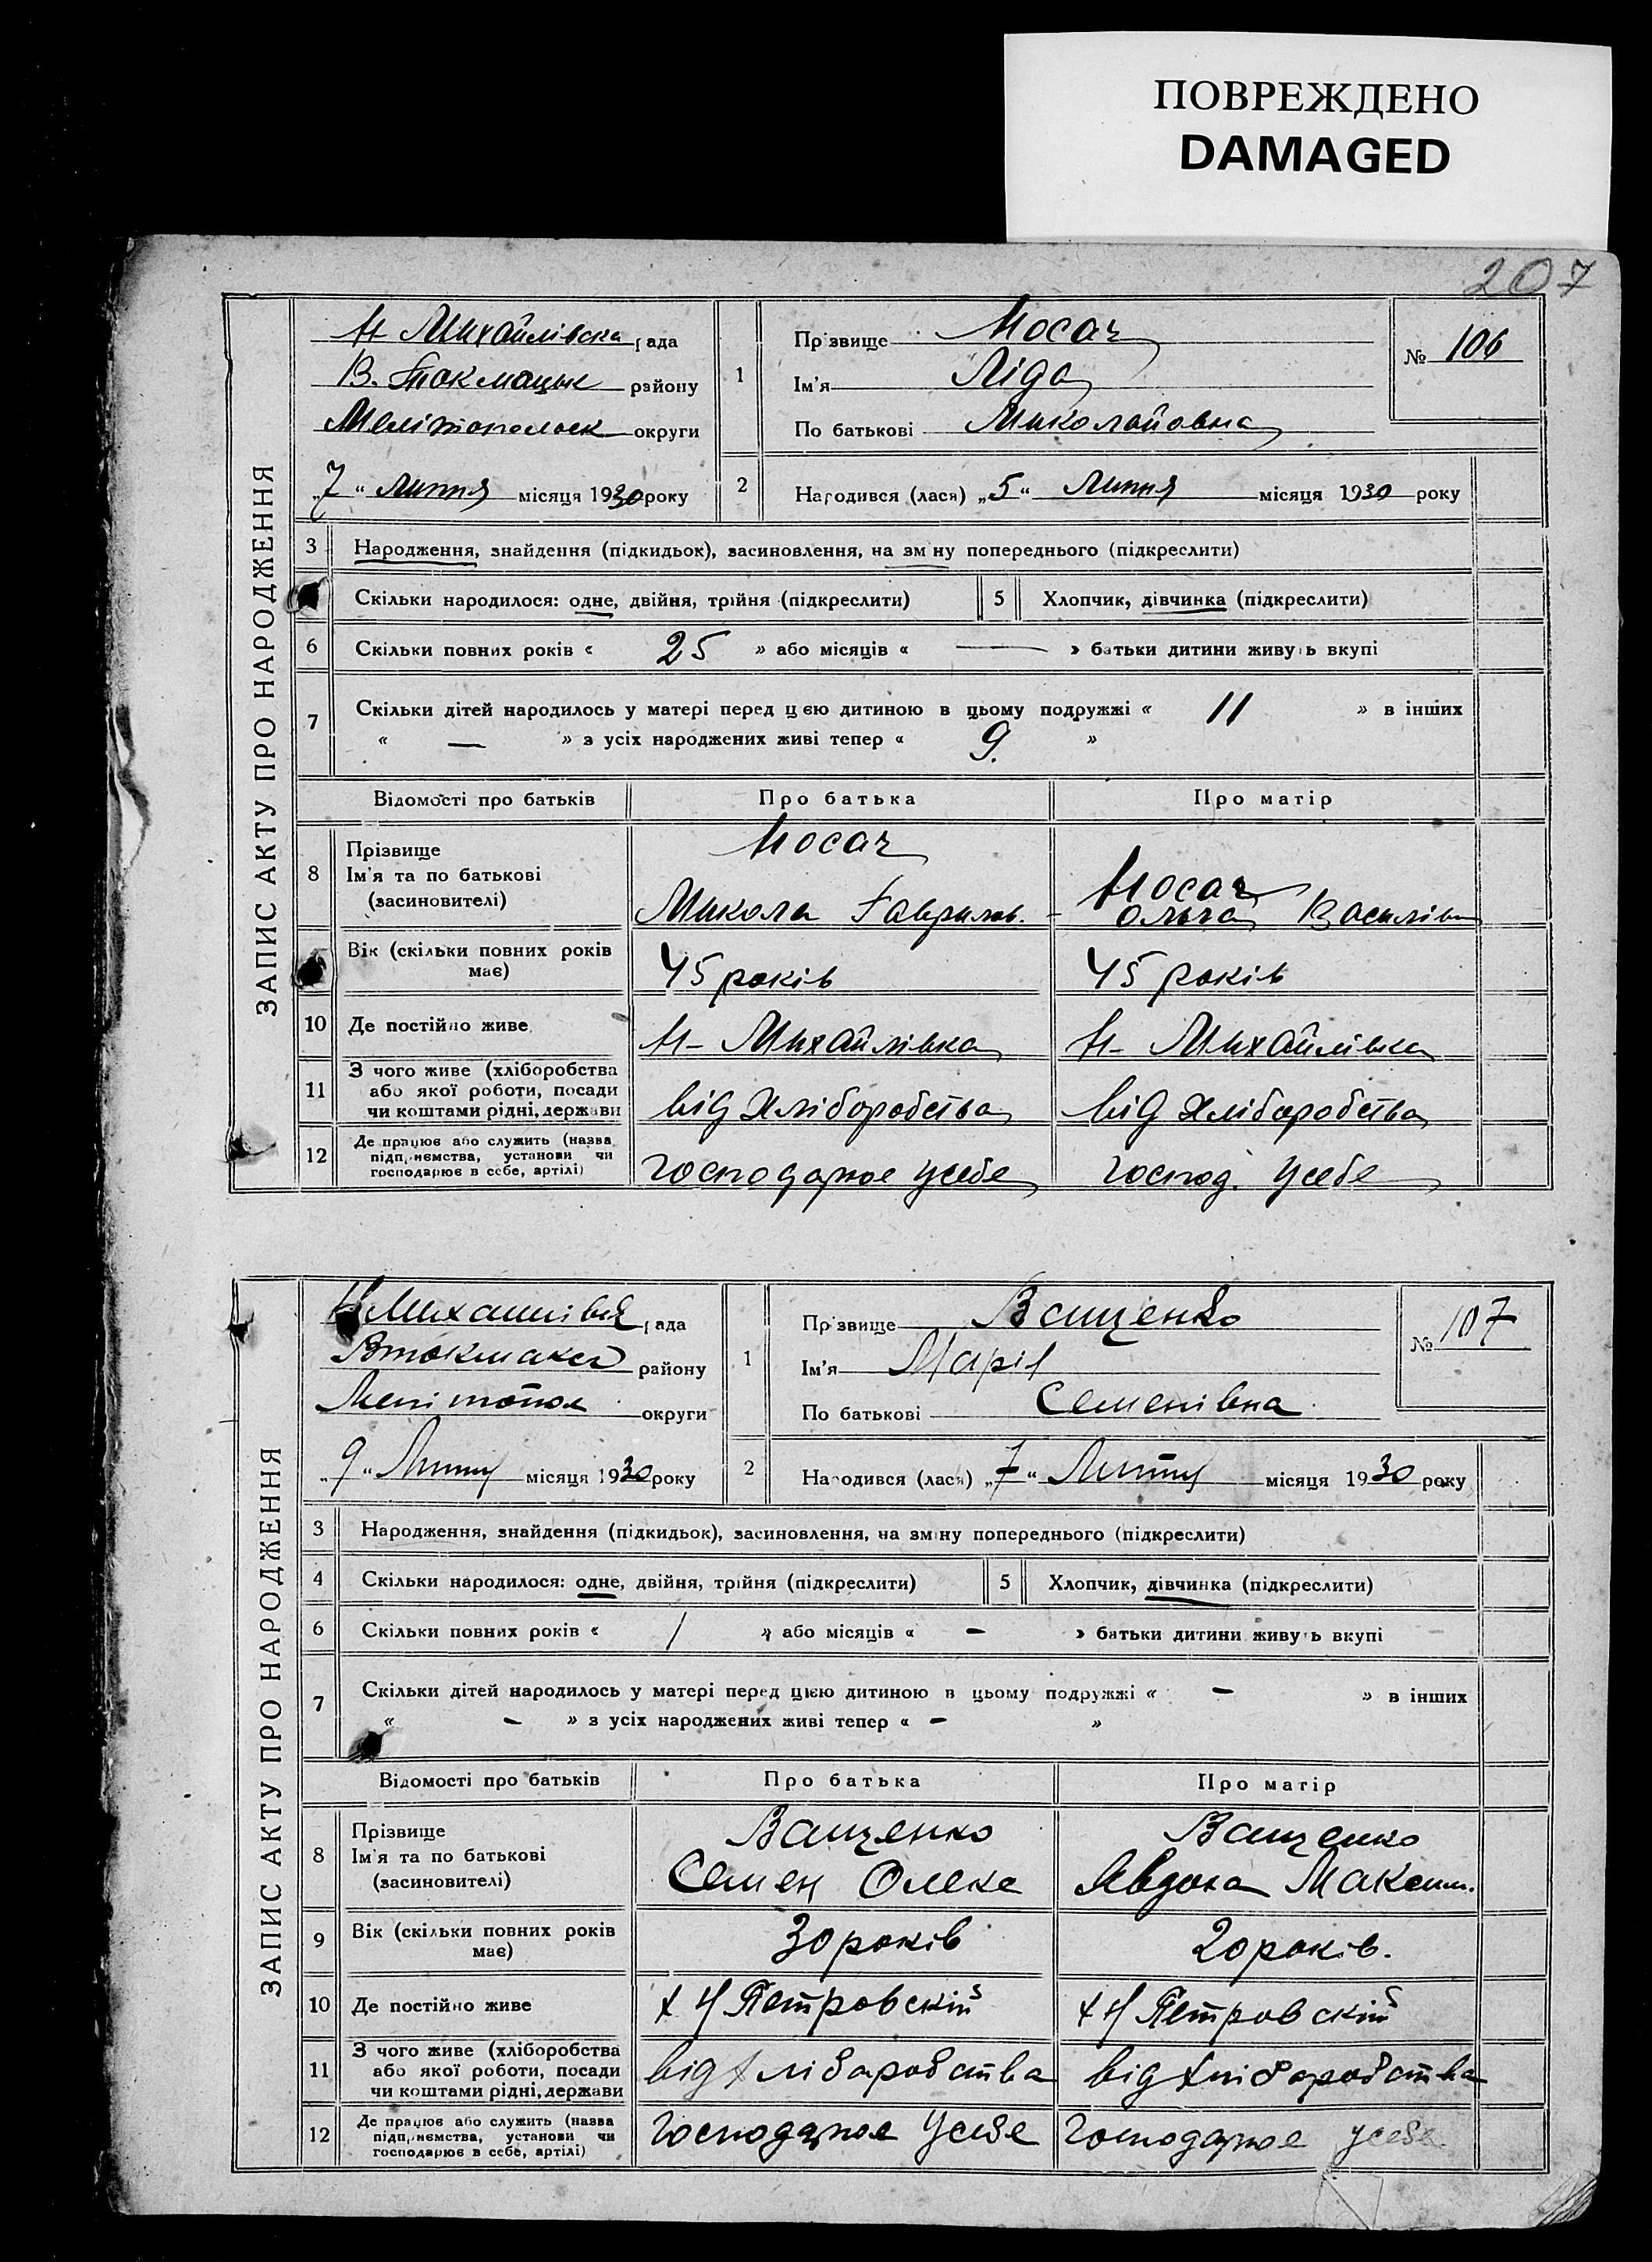 ПОВРЕЖДЕНО
DAMAGED
207
ЗАПИС АКТУ ПРО НАРОДЖЕННЯ
Н-Михайлівска рада
В. Токмацьк району
Мелітопольск округи
„7“ липня місяця 1930 року
1
Прізвище Носач
Ім'я Ліда
По батькові Миколайовна
№ 106
2
Народився (лася) „5“ Липня місяця 1930 року
3 Народження, знайдення (підкидьок), засиновлення, на зміну попереднього (підкреслити)
Скільки народилося: одне, двійня, трійня (підкреслити) 5 Хлопчик, дівчинка (підкреслити)
6 Скільки повних років « 25 » або місяців « — » батьки дитини живуть вкупі
7 Скільки дітей народилось у матері перед цією дитиною в цьому подружжі « 11 » в інших
« — » з усіх народжених живі тепер « 9. »
Відомості про батьків Про батька Про матір
8 Прізвище
Ім'я та по батькові
(засновителі)
Носач
Микола Гаврилов.
Носач
Ольга Василівн
Вік (скільки повних років має) 45 років 45 років
10 Де постійно живе Н-Михайлівка Н-Михайлівка
11 З чого живе (хліборобства
або якої роботи, посади
чи коштами рідні, держави
від Хліборобства від Хліборобства
12 Де працює або служить (назва
підприємства, установи чи
господарює в себе, артілі)
Господарює усебе Господ. усебе
ЗАПИС АКТУ ПРО НАРОДЖЕННЯ
рада
району
Мелітопол округи
„9“ Липня місяця 1930 року
1
Прізвище Ващенко
Ім'я Марія
По батькові Семенівна
№ 107
2
Народився (лася) „7“ Липня місяця 1930 року
3 Народження, знайдення (підкидьок), засиновлення, на зміну попереднього (підкреслити)
4 Скільки народилося: одне, двійня, трійня (підкреслити) 5 Хлопчик, дівчинка (підкреслити)
6 Скільки повних років « 1 » або місяців « - » батьки дитини живуть вкупі
7 Скільки дітей народилось у матері перед цією дитиною в цьому подружжі « - » в інших
« - » з усіх народжених живі тепер « - »
Відомості про батьків Про батька Про матір
8 Прізвище
Ім'я та по батькові
(засиновителі)
Ващенко
Семен Олекс
Ващенко
Явдоха Максим.
9 Вік (скільки повних років має) 30 років 20 років.
10 Де постійно живе х Н Петровский х Н Петровский
11 З чого живе (хліборобства
або якої роботи, посади
чи коштами рідні, держави
від хліборобства від хліборобства
12 Де працює або служить (назва
підприємства, установи чи
господарює в себе, артілі)
Господарює усебе Господарює усебе